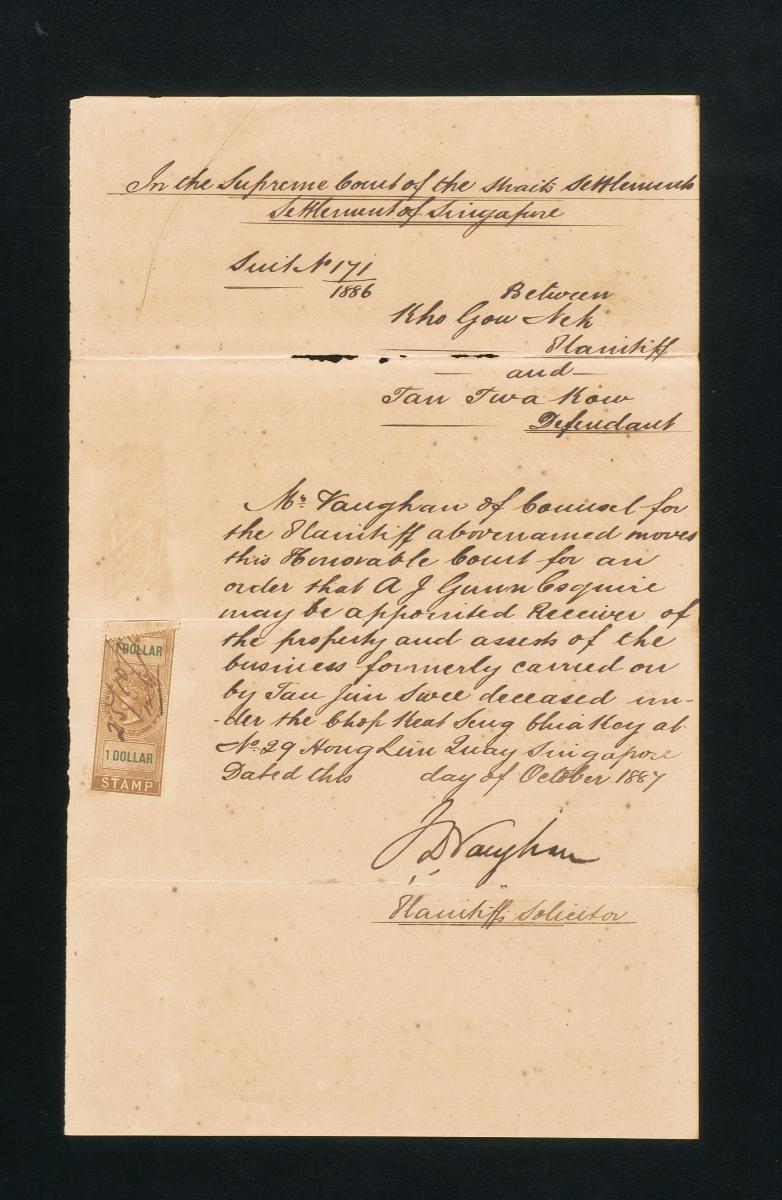 In the Supreme Court of the Straits Settlements
Settlement of Singapore
Suit No 171
1886
Between
Kho Gou Nek
Plaintiff
and
Tan Twa Kow
Defendant
Mr. Vaughan of Counsel for
the Plaintiff abovenamed moves
this Honorable Court for an
order that A J Gunn Esquire
may be appointed Receiver of
the property and assets of the
business formerly carried on
by Tan Jin Swee deceased un-
-der the Chop Keat Seng Chia Koy at
No. 29 Hong Lim Quay Singapore
Dated this day of October 1887
J D Vaughan
Plaintiffs Solicitor
1 DOLLAR
1 DOLLAR
STAMP